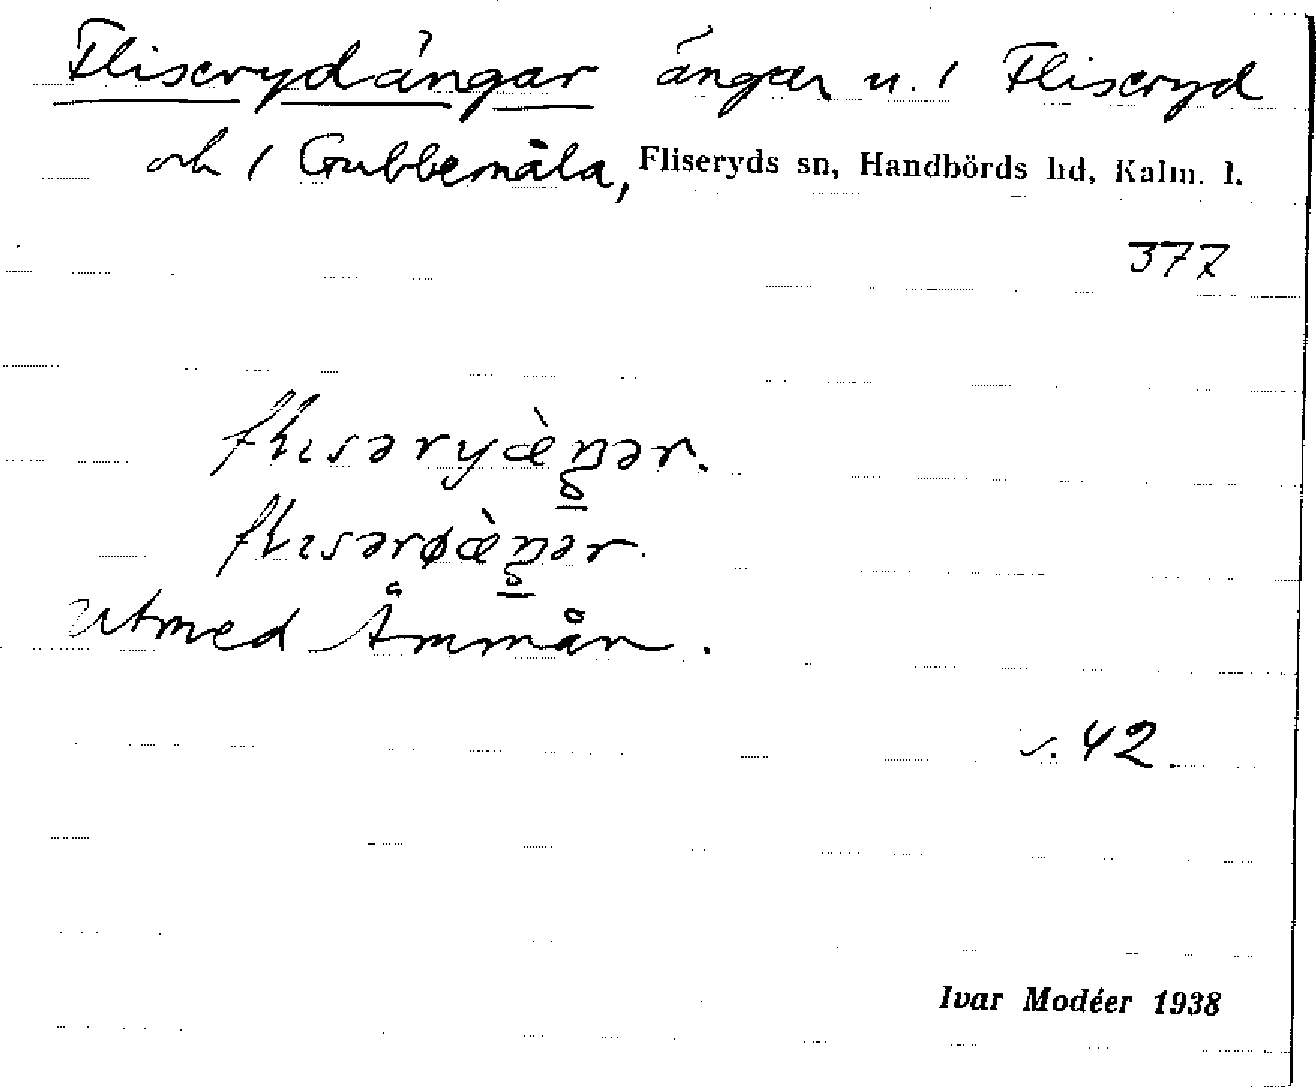 Fliserydängar ängar u. i Fliseryd
och i Grubbemåla, Fliseryds sn, Handbörds hd, Kalm. l.
377
flɩsəryæ̀ŋər.
flɩsərøæ̀ŋər.
utmed Åmmån.
s. 42
Ivar Modéer 1938